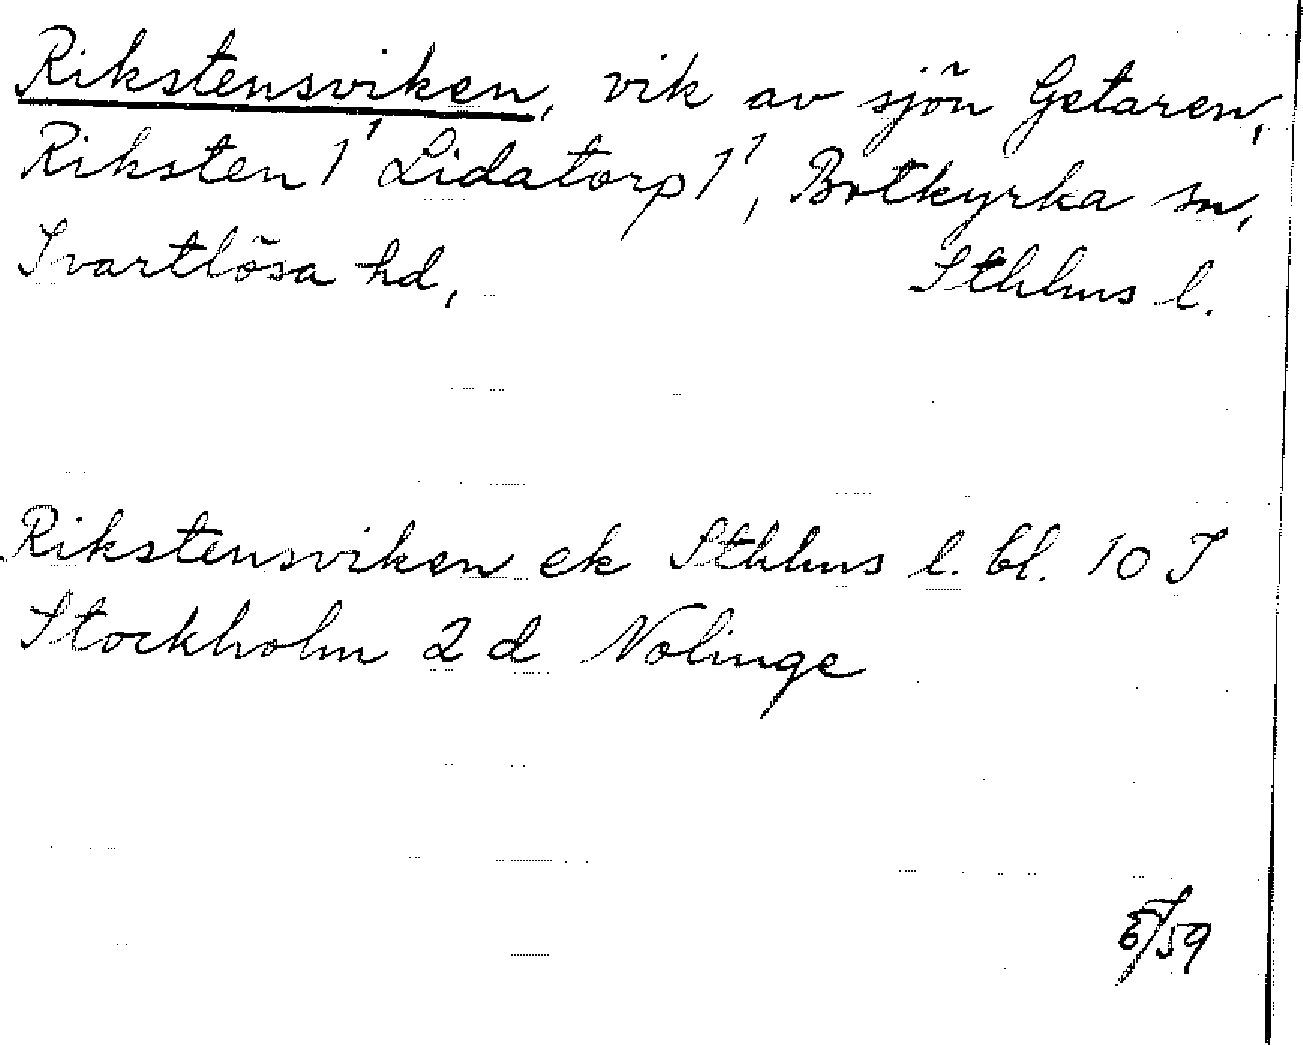 Rikstensviken, vik av sjön Getaren,
Riksten 1¹ Lidatorp 1¹, Botkyrka sn,
Svartlösa hd, Sthlms l.
Rikstensviken ek Sthlms l. bl. 10 I
Stockholm 2 d Nolinge
/59